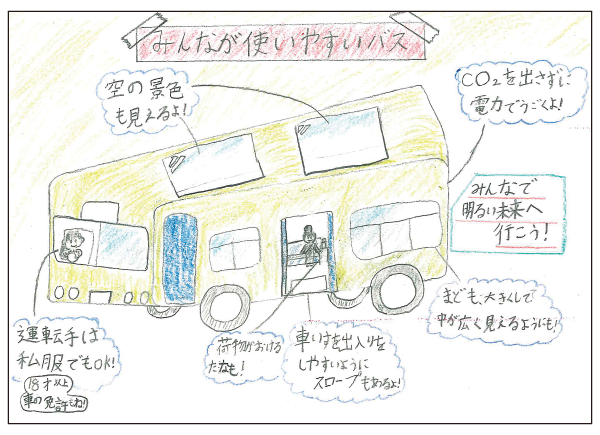 みんなが使いやすいバス
空の景色
も見えるよ!
CO2を出さずに
電力でうごくよ!
みんなで
明るい未来へ
行こう!
運転手は
私服でもOK!
18才以上
車の免許もね!
荷物がおける
たなも!
車いすを出入りを
しやすいように
スロープもあるよ!
まども、大きくして
中が広く見えるようにも!